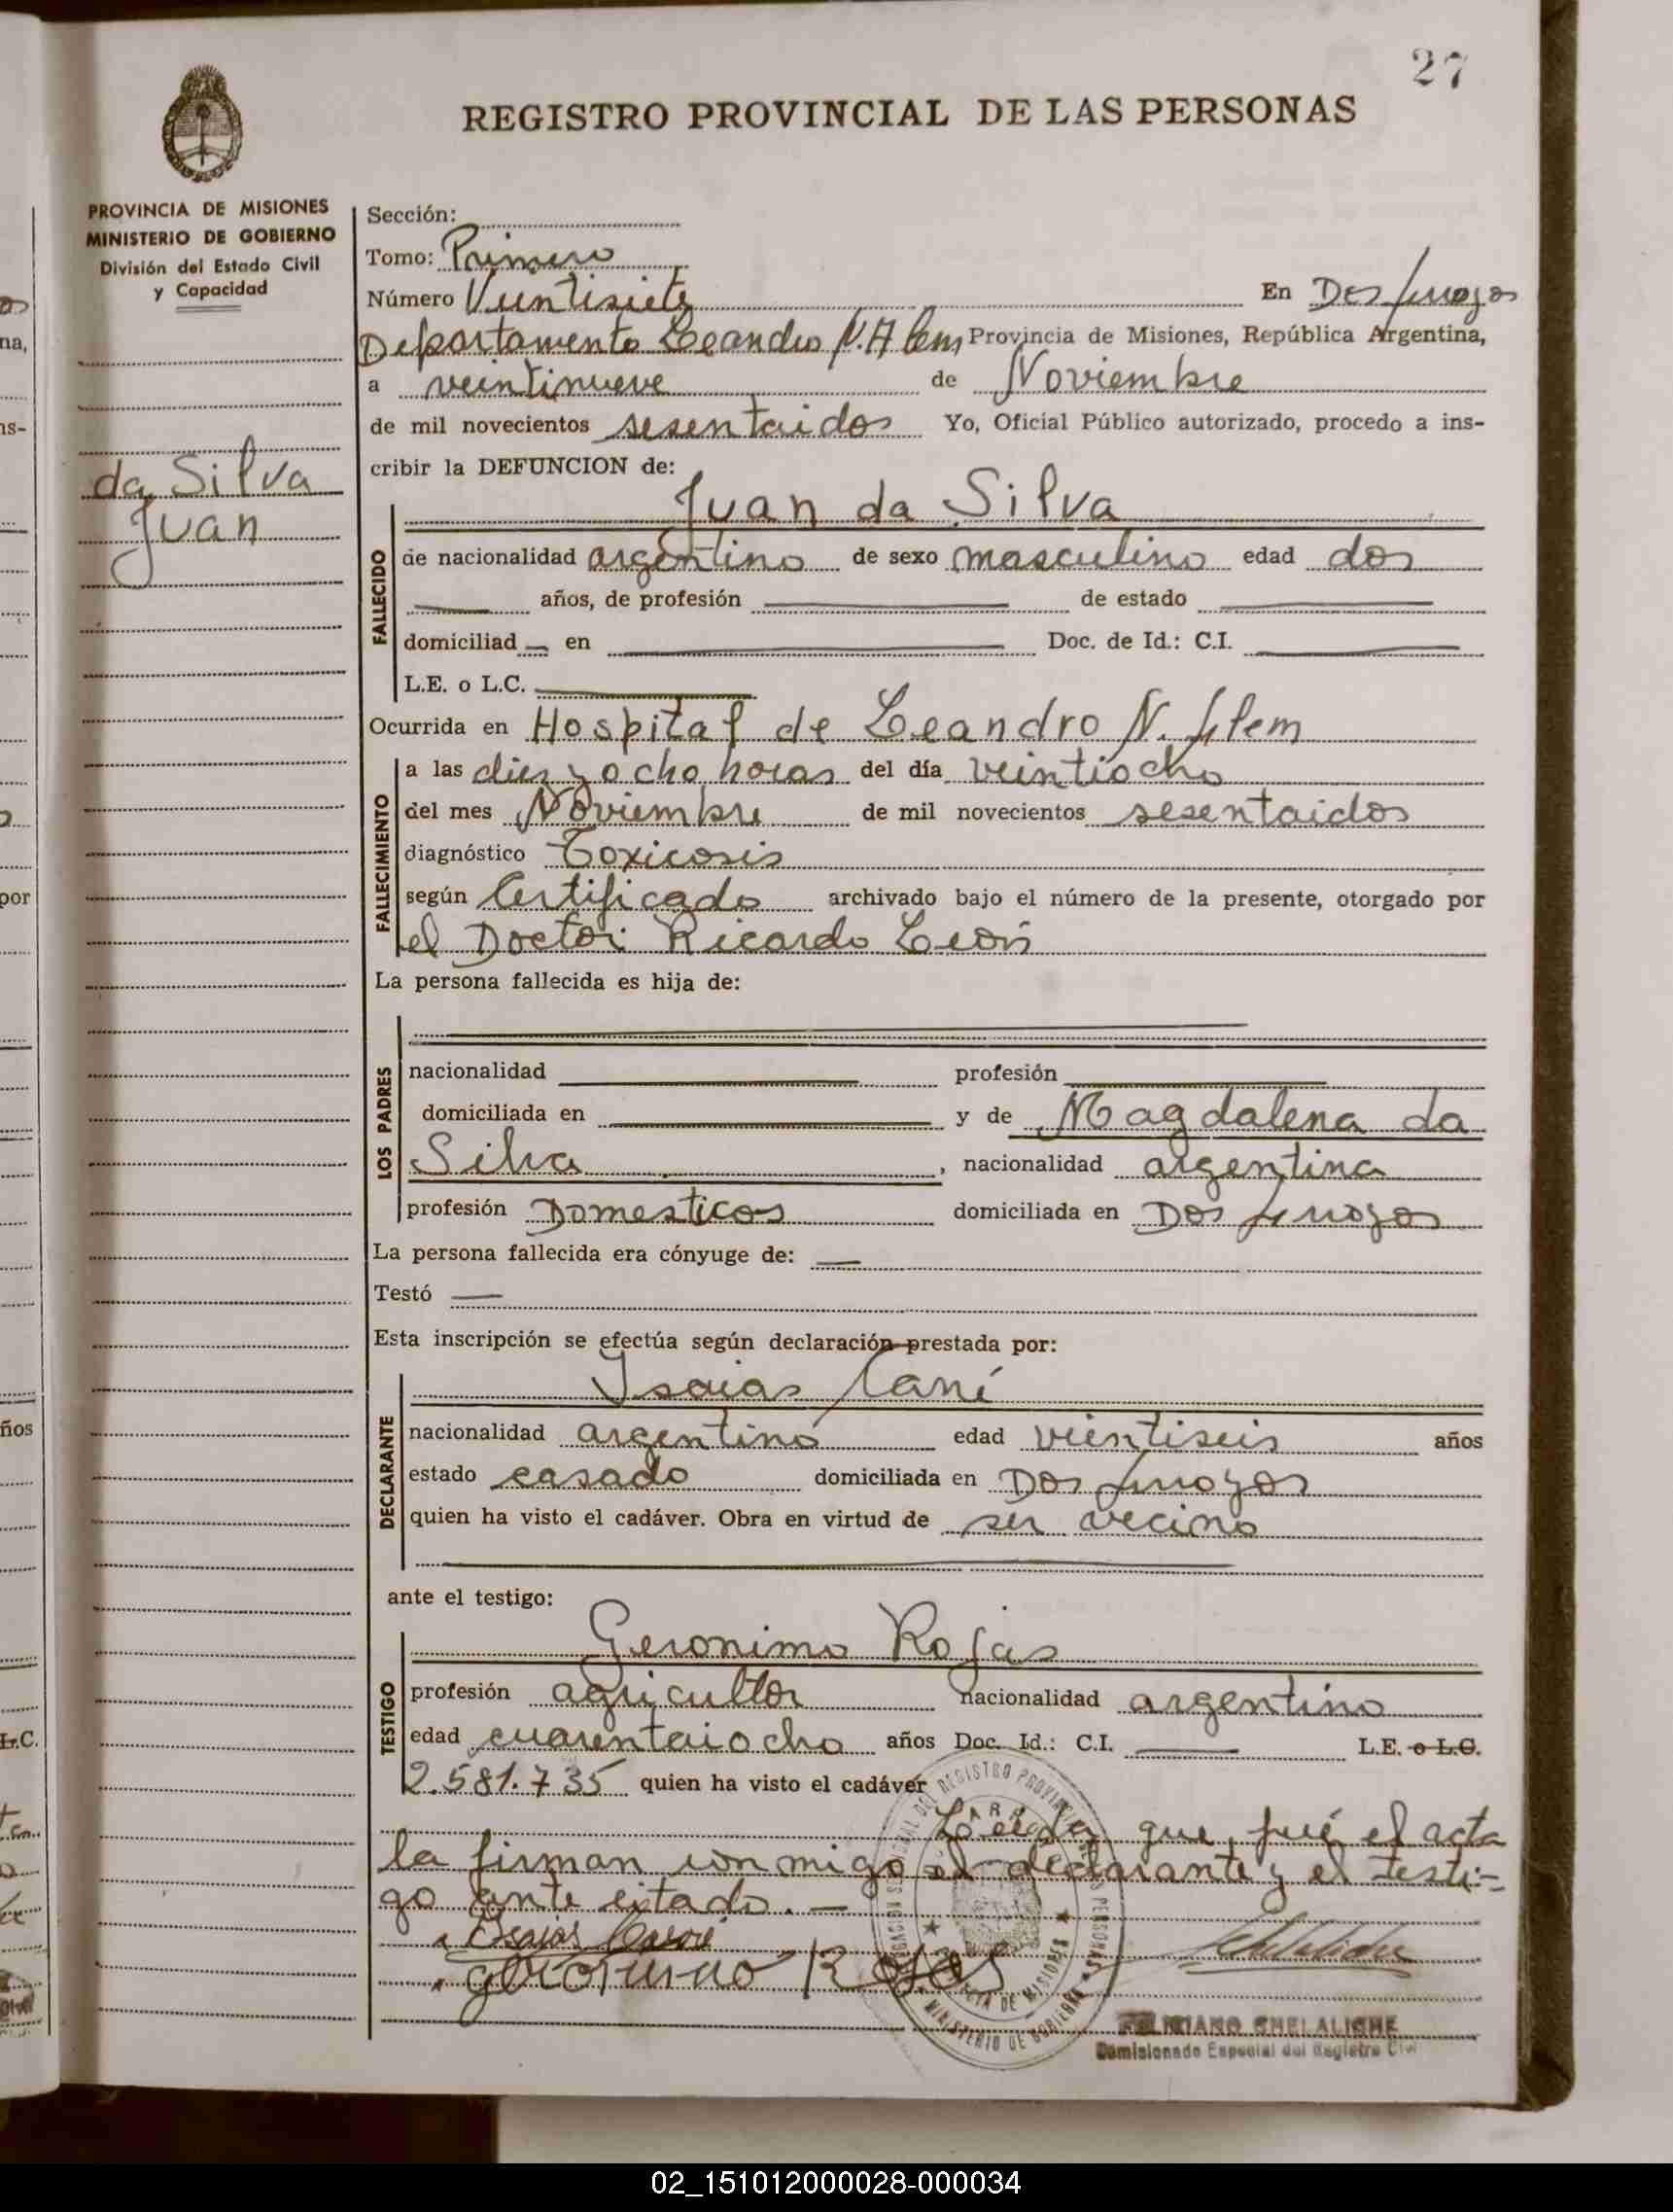 27
REGISTRO PROVINCIAL DE LAS PERSONAS
PROVINCIA DE MISIONES
MINISTERIO DE GOBIERNO
División del Estado Civil
y Capacidad
da Silva
Juan
Sección:
Tomo: Primero
Número Vuntisiete En Dos Arroyos
Departamento Leandro N. Alem Provincia de Misiones, República Argentina,
a veintinueve de Noviembre
de mil novecientos sesentaidos Yo, Oficial Público autorizado, procedo a ins-
cribir la DEFUNCION de:
Juan da Silva
FALLECIDO
de nacionalidad argentino de sexo masculino edad dos
años, de profesión de estado
domiciliad en Doc. de Id.: C.I.
L.E. o L.C.
Ocurrida en Hospital de Leandro N. Alem
FALLECIMIENTO
a las diez y ocho horas del día veintiocho
del mes Noviembre de mil novecientos sesentaidos
diagnóstico Toxicosis
según Certificado archivado bajo el número de la presente, otorgado por
el Doctor Ricardo León
La persona fallecida es hija de:
LOS PADRES
nacionalidad profesión
domiciliada en y de Magdalena da
Silva, nacionalidad argentina
profesión Domesticos domiciliada en Dos Arroyos
La persona fallecida era cónyuge de:
Testó
Esta inscripción se efectúa según declaración prestada por:
DECLARANTE
Isaias
nacionalidad argentino edad vientiseis años
estado casado domiciliada en Dos Arroyos
quien ha visto el cadáver. Obra en virtud de ser vecino
ante el testigo:
TESTIGO
Geronimo Rojas
profesión agricultor nacionalidad argentino
edad cuarentaiocho años Doc. Id.: C.I. L.E. o L.C.
2.581.735 quien ha visto el cadáver
Leida que fué el acta
la firman conmigo el declarante y el testi-
go ante citado. —
Isaias
Geronimo Rojas
Comisionado Especial del Registro Civil
02_151012000028-000034